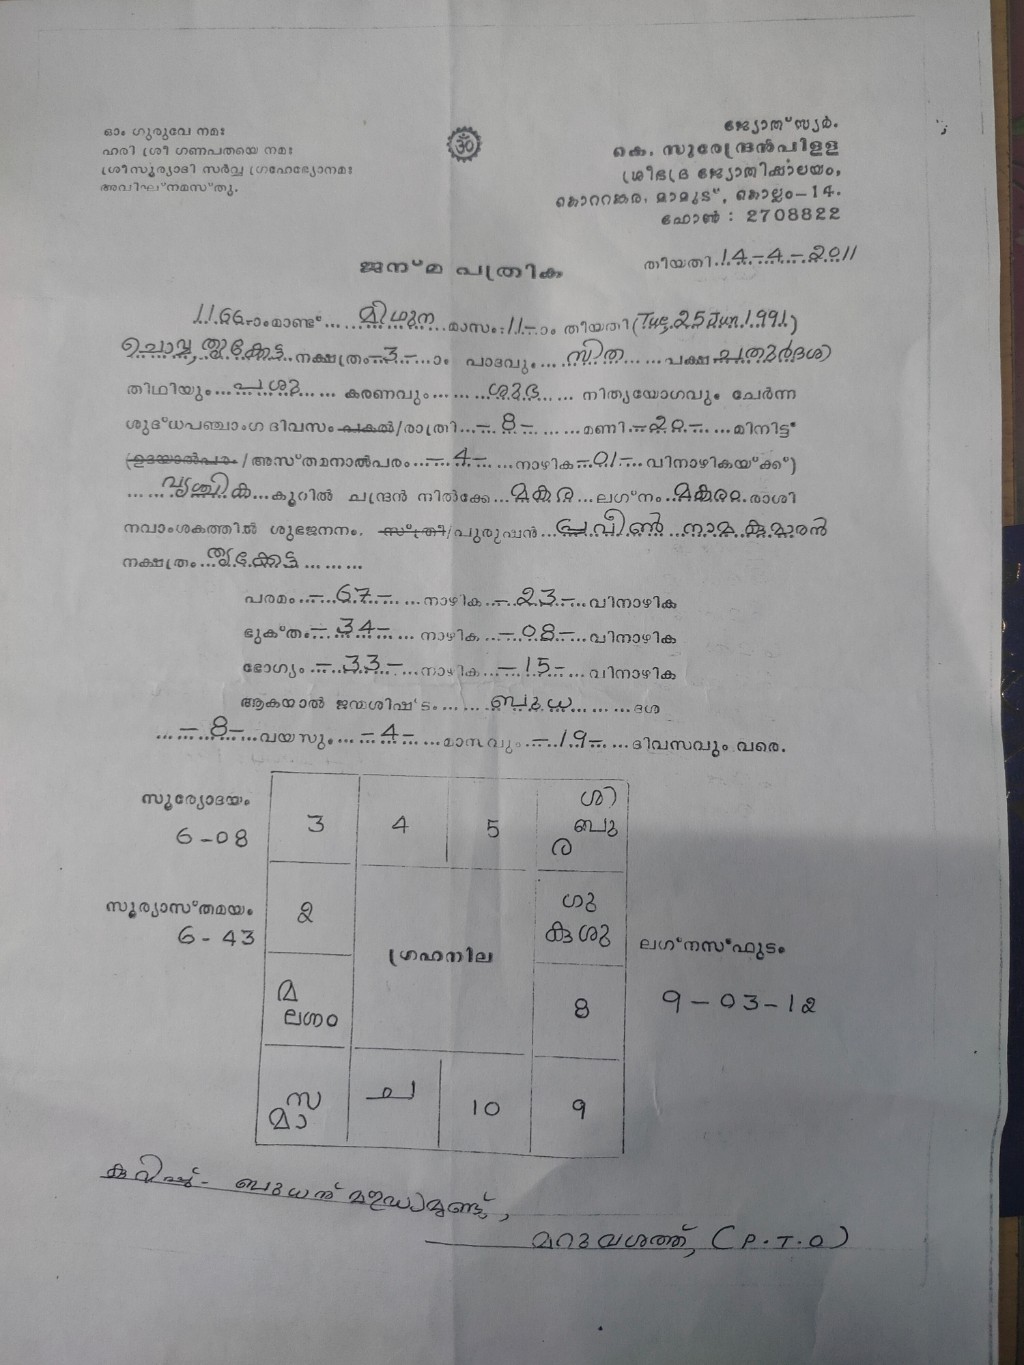 ഓം ഗുരുവേ നമഃ
ഹരി ശ്രീ ഗണപതയെ നമഃ
ശ്രീസൂര്യാദി സർവ്വ ഗ്രഹേഭ്യോനമഃ
അവിഘ്നമസ്തു.
ॐ
ജ്യോത്സ്യർ.
കെ. സുരേന്ദ്രൻപിള്ള
ശ്രീഭദ്ര ജ്യോതിഷാലയം,
കൊററങ്കര, മാമൂട്, കൊല്ലം-14.
ഫോൺ : 2708822
ജന്മ പത്രിക
തീയതി 14-4-2011
1166 ാംമാണ്ട് മിഥുന മാസം 11- ാം തീയതി (Tue, 25 Jun. 1991)
ചൊവ്വ, തൃക്കേട്ട നക്ഷത്രം -3- ാം പാദവും സിത പക്ഷ ചതുർദശി
തിഥിയും പശു കരണവും ശുഭ നിത്യയോഗവും ചേർന്ന
ശുദ്ധപഞ്ചാംഗ ദിവസം പകൽ/രാത്രി -8- മണി -20- മിനിട്ട്
(ഉദയാൽപരം/അസ്തമനാൽപരം -4- നാഴിക -01- വിനാഴികയ്ക്ക്)
വൃശ്ചിക കൂറിൽ ചന്ദ്രൻ നിൽക്കേ മകര ലഗ്നം മകരം രാശി
നവാംശകത്തിൽ ശുഭജനനം. സ്ത്രീ/പുരുഷൻ പ്രവീൺ നാമ കുമാരൻ
നക്ഷത്രം തൃക്കേട്ട
പരമം -67- നാഴിക -23- വിനാഴിക
ഭുക്തം -34- നാഴിക -08- വിനാഴിക
ഭോഗ്യം -33- നാഴിക -15- വിനാഴിക
ആകയാൽ ജന്മശിഷ്ടം ബുധ ദശ
-8- വയസും -4- മാസവും -19- ദിവസവും വരെ.
സൂര്യോദയം
6-08
സൂര്യാസ്തമയം
6-43
3 4 5 ശി ബു ര
2 ഗു കു ശു
ഗ്രഹനില
മ ലഗ്നം 8
സ മാ ച 10 9
ലഗ്നസ്ഫുടം
9-03-12
കുറിപ്പ്- ബുധന് മൗഢ്യമുണ്ട്,
മറുവശത്ത്, (P.T.O)